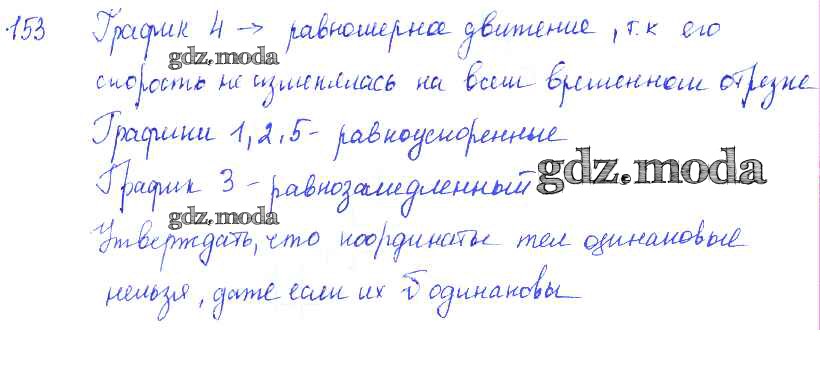 153 График 4 → равномерное движение, т.к его
gdz.moda
скорость не изменялась на всем временном отрезке
Графики 1, 2, 5 - равноускоренные
График 3 - равнозамедленный gdz.moda
gdz.moda
Утверждать, что координаты тел одинаковые
нельзя, даже если их v одинаковы